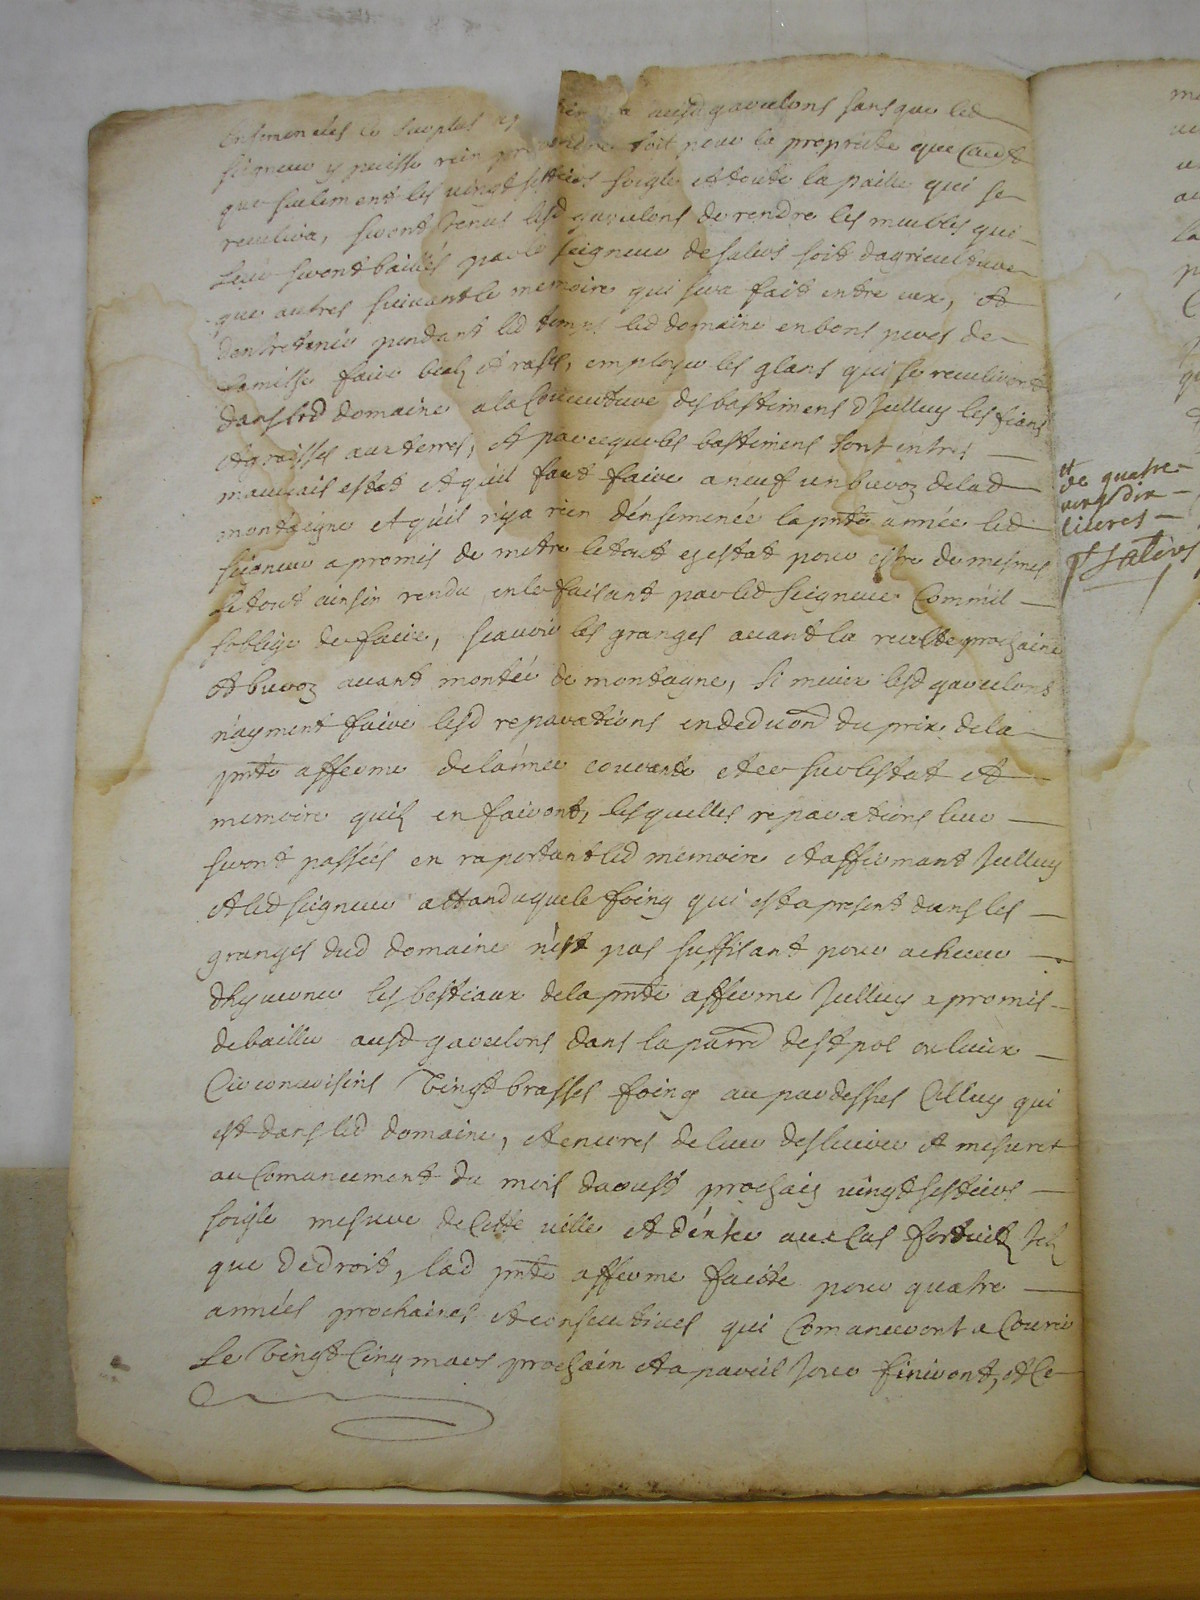 ensemencés le surplus ausd gaveulons sans que led
seigneur y puisse rien pretendre soit pour la propriete que
que seulement les vingt sestiers soigle et toute la paille qui se
receulira, seront tenus lesd gaveulons de rendre les meubles qui
leur seront baillés par le seigneur de salers soit dagriculture
que autres suivant le memoire qui sera fait entre eux, et
dentretenir pendant led temps led domaine en bons peres de
familhe faire bealz et rases, employer les glans qui se receuliront
dans led domaine a la couverture des bastimens d Icelluy les fians
et graisses aux terres, et parceque les bastimens sont en tres
mauvais estat et quil faut faire a neuf un buroz de lad
montaigne et quil nya rien densemencé la pnte année led
seigneur a promis de metre le tout en estat pour estre de mesmes
le tout ainsin rendu en le faisant par led seigneur comme il
soblige de faire, scavoir les granges avant la recolte prochaine
et buroz avant montée de montagne, si mieux lesd gaveulons
nayment faire lesd reparations en deduon du prix de la
pnte afferme de lannée courante et ce sur lestat et
memoire quilz en fairont, lesquelles reparations leur
seront passées en raportant led memoire et affirmant Icelluy
et led seigneur attandu que le foing qui est a present dans les
granges dud domaine nest pas suffisant pour achever
dhyverner les bestiaux de la pnte afferme Icelluy a promis
de bailler ausd gaveulons dans la parr de st pol ou lieux
circonvoisins vingt brasses foing au par dessus celluy qui
est dans led domaine, et encores de leur deslivrer et mesurer
au comancement du mois daoust prochain vingt sestiers
soigle mesure de cette ville et denter aux cas fortuitz telz
que de droit, lad pnte afferme faicte pour quatre
années prochaines et consecutives qui comanceront a courir
Le vingt cinq mars prochain et a pareil jour finiront, et ce
et
de quatre
vingt dix
livres
salers